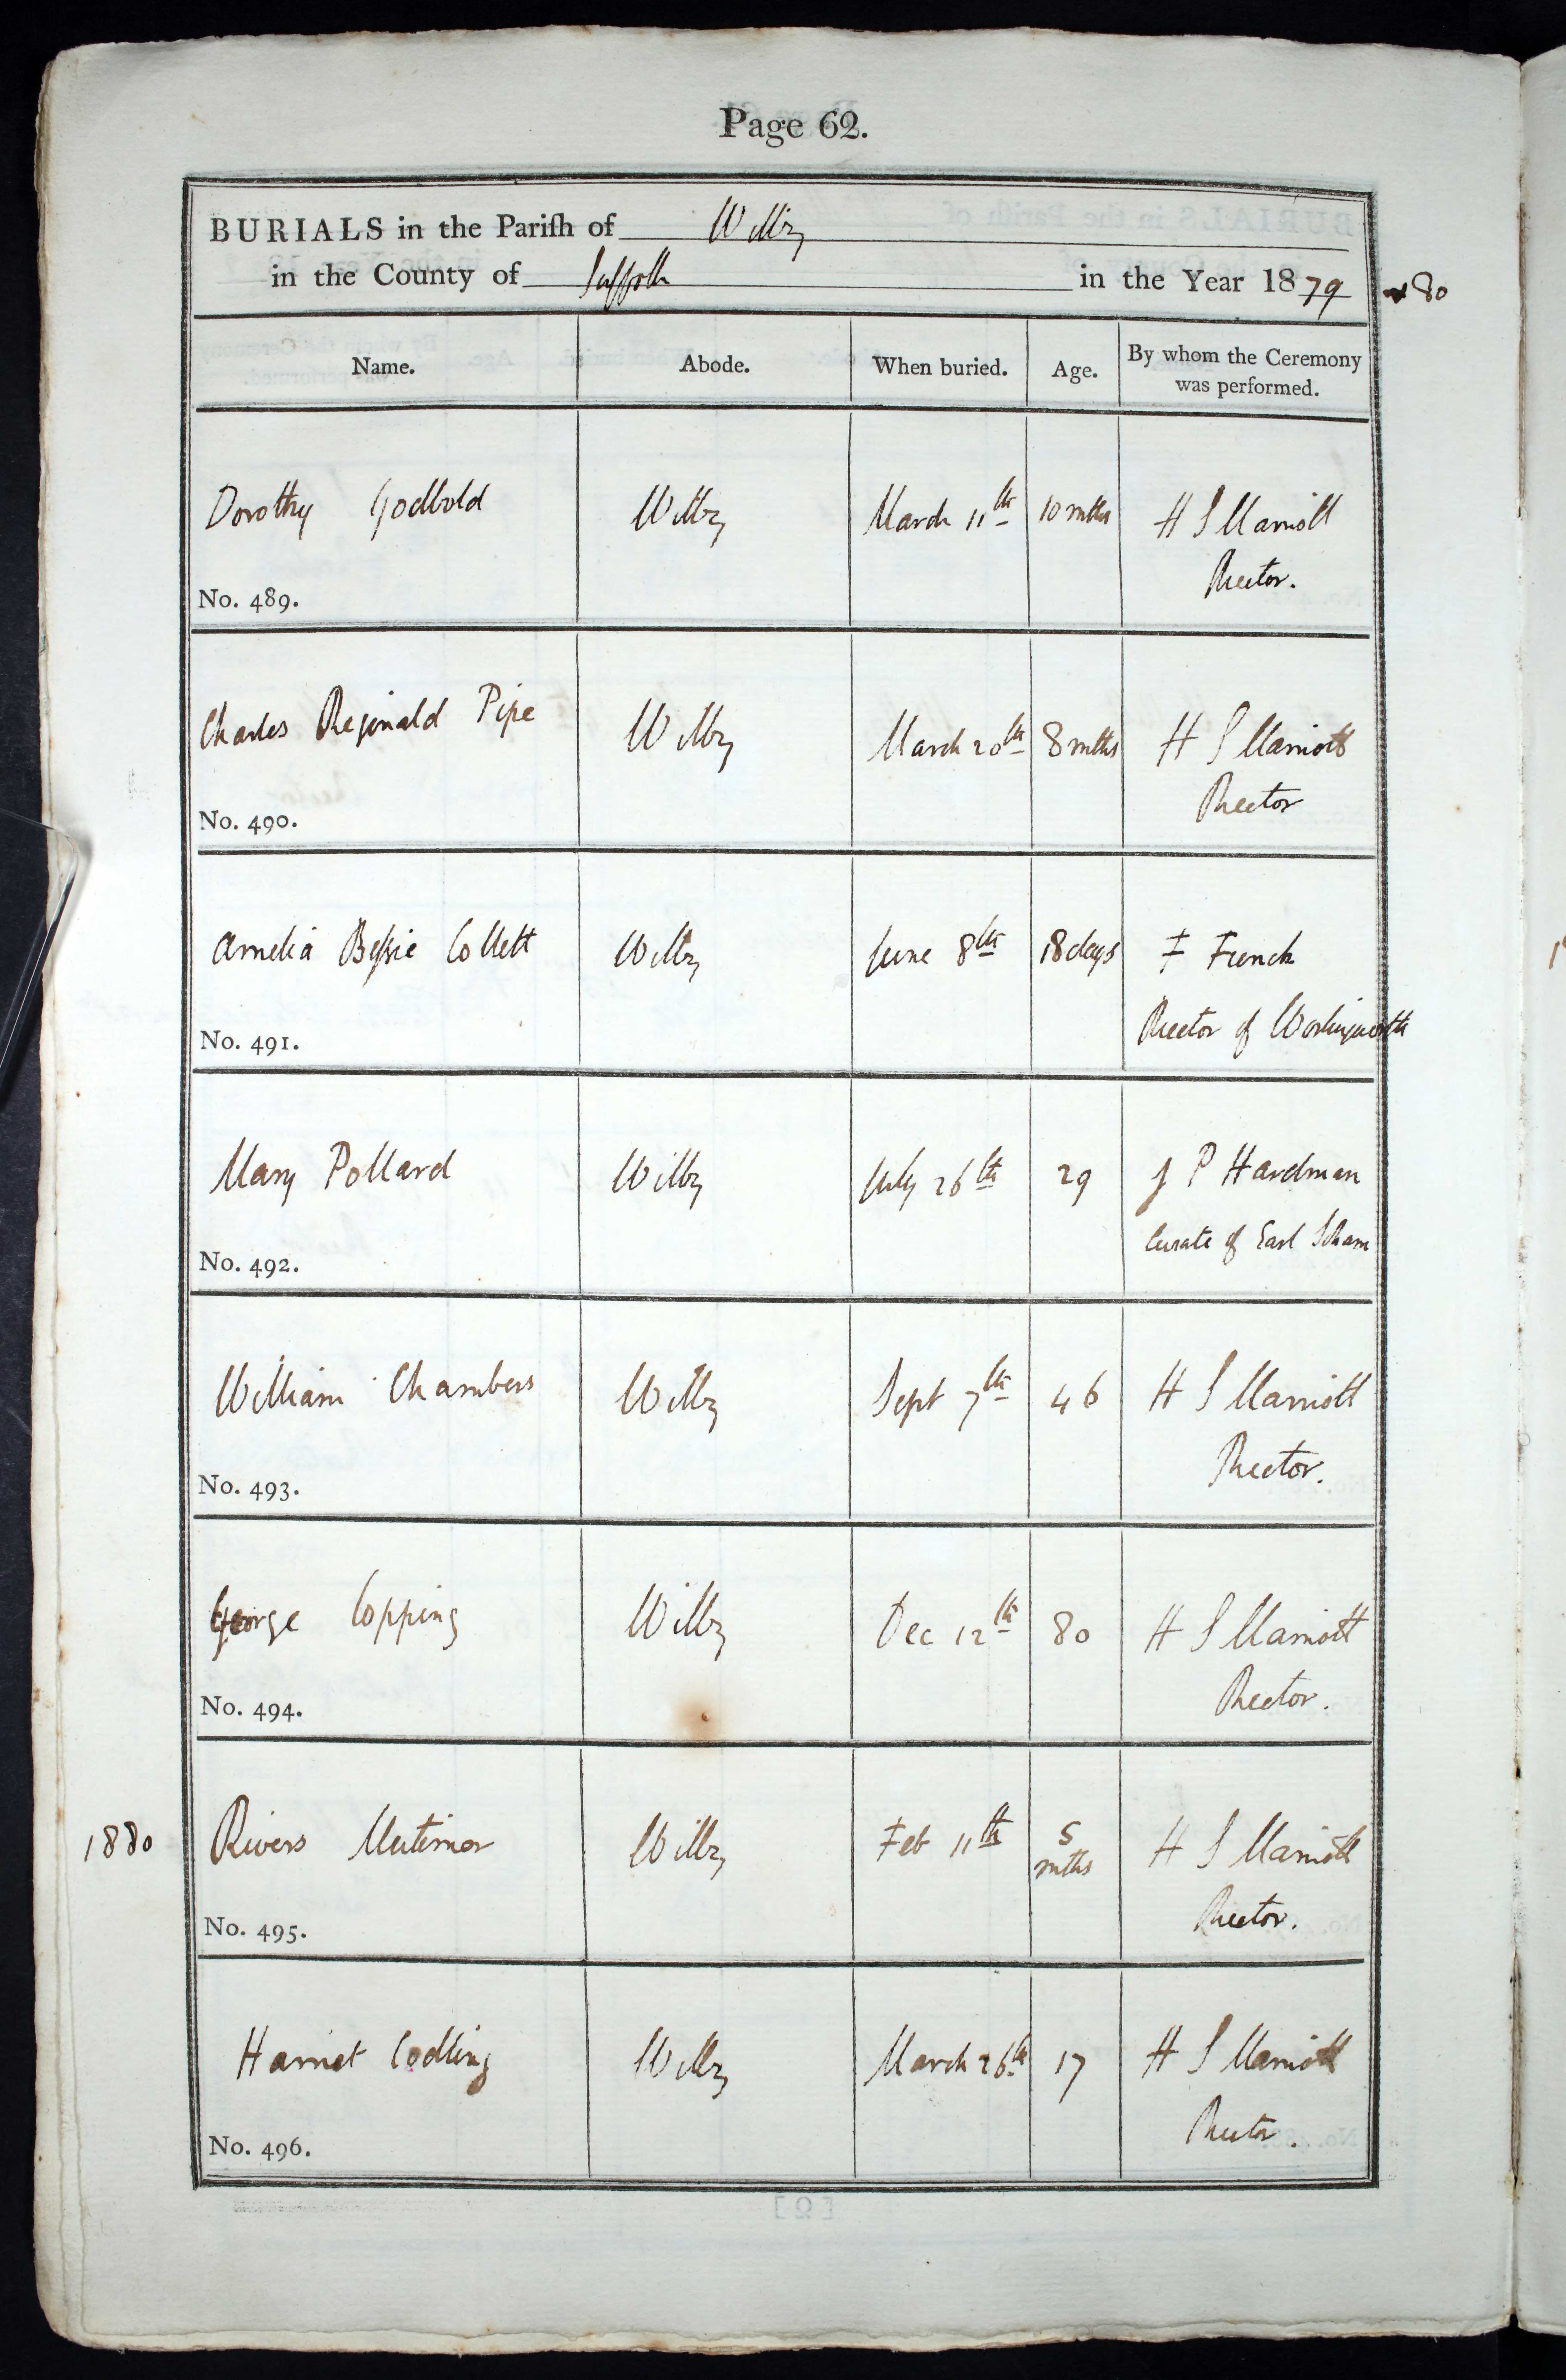 Page 62.
BURIALS in the Pariſh of Wilby
in the County of Suffolk in the Year 1879 & 80
Name. Abode. When buried. Age. By whom the Ceremony was performed.
Dorothy Godbold Wilby March 11th 10 mths H S Marriott
Rector.
No. 489.
Charles Reginald Pipe Wilby March 20th 8 mths H S Marriott
Rector
No. 490.
Amelia Beſsie Collett Wilby June 8th 18 days F French
Rector of Worlingworth
No. 491.
Mary Pollard Wilby July 26th 29 J P Hardman
Curate of Earl Soham
No. 492.
William Chambers Wilby Sept 7th 46 H S Marriott
Rector.
No. 493.
George Copping Wilby Dec 12th 80 H S Marriott
Rector.
No. 494.
1880 Rivers Mutimor Wilby Feb 11th 5 mths H S Marriott
Rector.
No. 495.
Harriet Codling Wilby March 26th 17 H S Marriott
Rector.
No. 496.